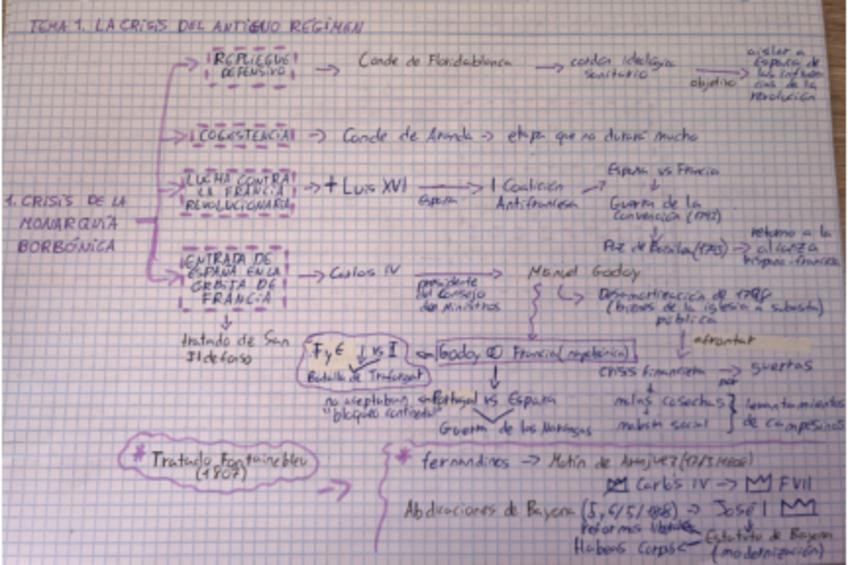 TEMA 1. LA CRISIS DEL ANTIGUO RÉGIMEN
1. CRISIS DE LA
MONARQUÍA
BORBÓNICA
REPLIEGUE
DEFENSIVO
Conde de Floridablanca
cordón ideológico
sanitario
objetivo
aislar a
España de
las influen
cias de la
revolución
COEXISTENCIA
Conde de Aranda → etapa que no durará mucho
LUCHA CONTRA
LA FRANCIA
REVOLUCIONARIA
+ Luis XVI
España
I Coalición
Antifrancesa
España vs Francia
Guerra de la
Convención (1793)
Paz de Basilea (1795) →
retorno a la
alianza
hispano-francesa
ENTRADA DE
ESPAÑA EN LA
ÓRBITA DE
FRANCIA
tratado de San
Ildefonso
Carlos IV
presidente
del Consejo
de Ministros
Manuel Godoy
Desamortización de 1798
(bienes de la iglesia a subasta)
pública
afrontar
crisis financiera → guerras
por
malas cosechas
malestar social
levantamientos
de campesinos
F y E vs I
Batalla de Trafalgar
Godoy Francia (napoleónica)
no aceptaban su
"bloqueo continental"
Portugal vs España
Guerra de las Naranjas
* Tratado Fontainebleu
(1807)
* fernandinos → Motín de Aranjuez (17/3/1808)
Carlos IV → F VII
Abdicaciones de Bayona (5 y 6/5/1808) → José I
reformas liberales
Habeas Corpus
Estatuto de Bayona
(modernización)